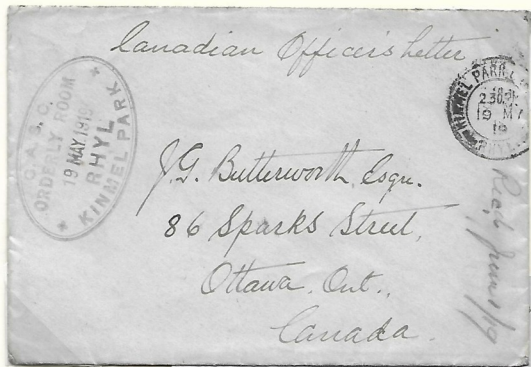 Canadian Officer's Letter
C.A.S.C.
ORDERLY ROOM
19 MAY 1919
RHYL
KINMEL PARK
KINMEL PARK
2.30 PM
19 MY
19
RHYL
J.G. Butterworth, Esqu.
86 Sparks Street,
Ottawa, Ont.,
Canada.
Rec'd June 1/19